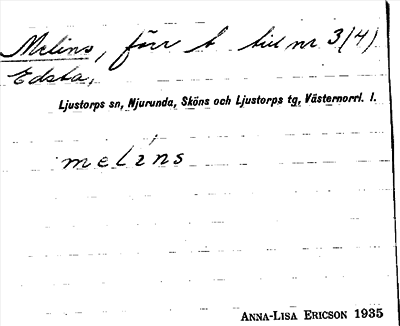 Melins, förr t. till nr 3(4)
Edsta,
Ljustorps sn, Njurunda, Sköns och Ljustorps tg, Västernorrl. l.
melins
ANNA-LISA ERICSON 1935